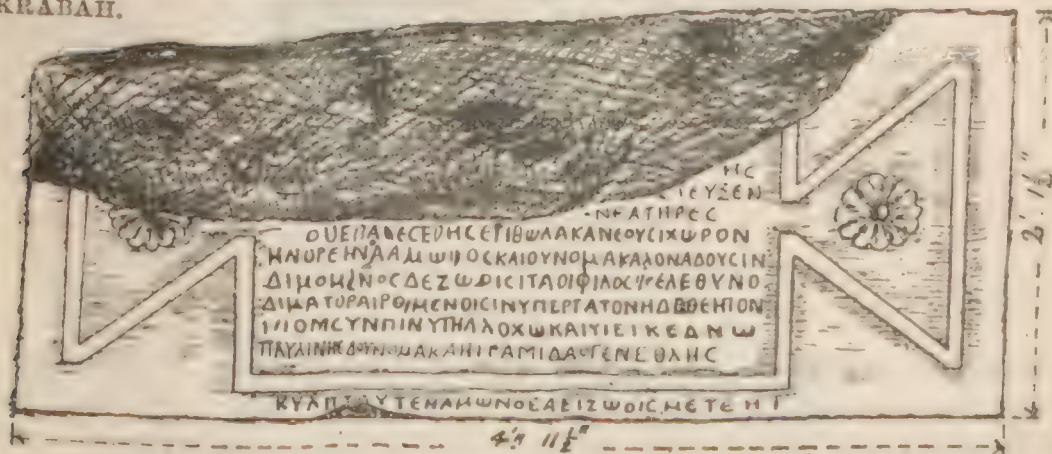 KRABAH.
ΗϹ
ΙΕΥΞΕΝ
ΝΕΑΤΗΡΕϹ
ΟΥΕΠΑΘΕϹΕΥΗϹΕΡΙΘΩΛΑΚΑΝΕΟΥϹΙΧΩΡΟΝ
ΗΝΟΡΕΗΝΔΑΜΩΙΡΟϹΚΑΙΟΥΝΟΜΑΚΑΛΟΝΑΔΟΥϹΙΝ
ΔΙΜΟΜΗΝΟϹΔΕΖΩΔΙϹΙΤΑΟΙΦΙΛΟϹ ΕΛΕΘΥΝΟ
ΔΙΜΑΤΟΡΑΙΡΟΜΕΝΟΙϹΙΝΥΠΕΡΓΑΤΟΝΗΔ ΘΕΗΤΟΝ
ΙΠΟΜϹΥΝΠΙΝΥΤΗΑΛΟΧΩΚΑΙΥΙΕΙΚΕΔΝΩ
ΠΑΥΛΙΝΗΕΔΥΝΟΜΑΚΛΗΙΓΑΜΙΔΑΟΓΕΝΕΘΛΗϹ
ΚΥΛΠΤ ΥΤΕΝΑΜΩΝΟΕΑΕΙΖΩΟΙϹΜΕΤΕΗΙ
2' 1½"
4' 11½"